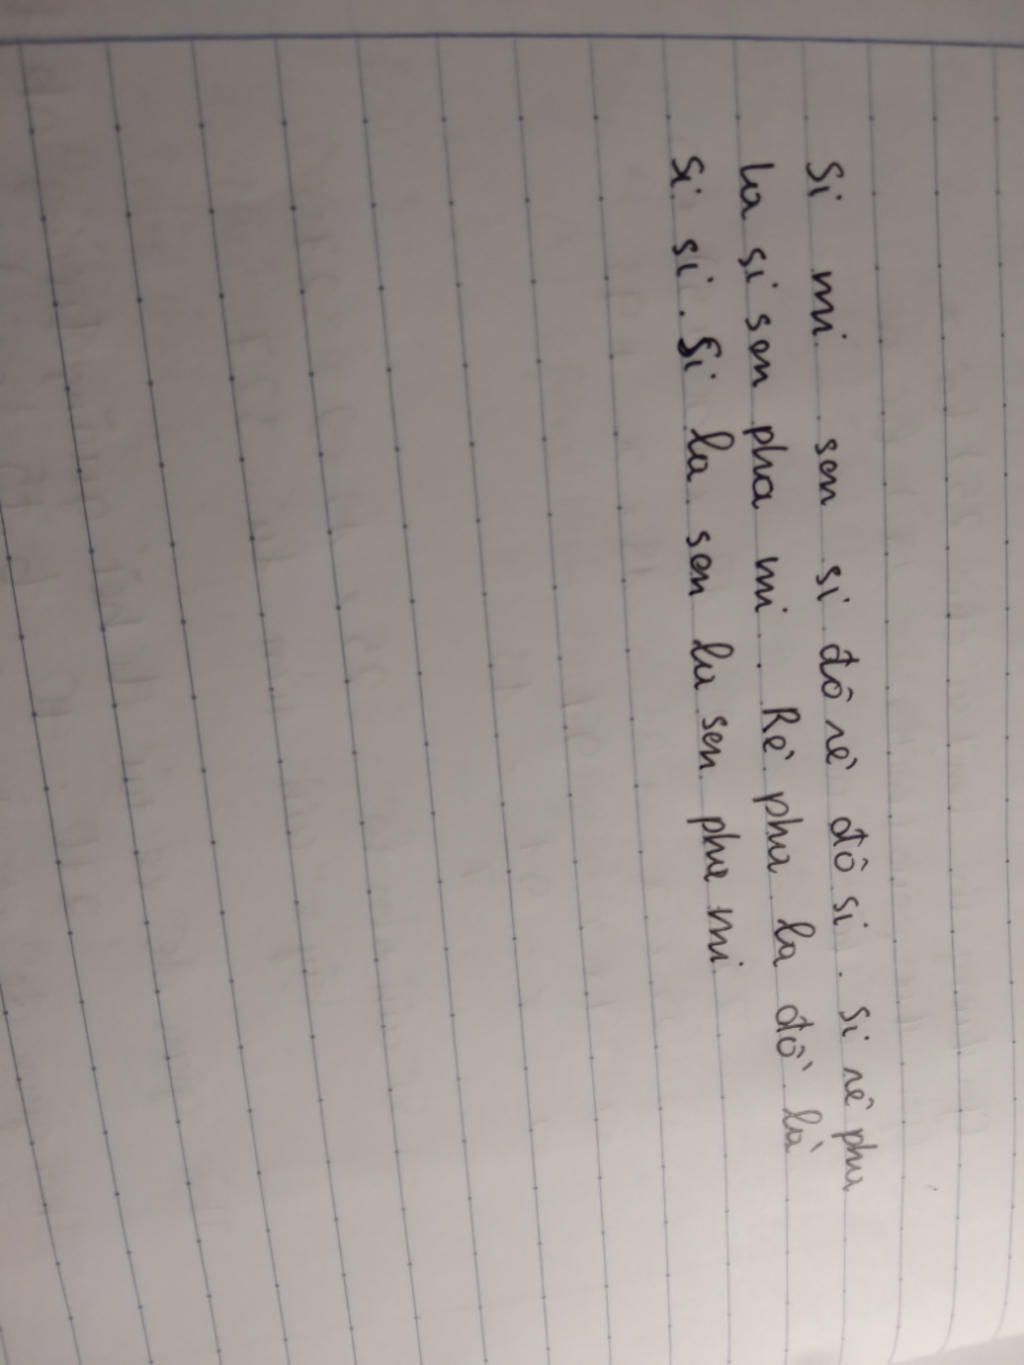 Si mi son si đô rê đô si . si rê pha
la si son pha mi . Rê pha la đô là
si si . Si la son la son pha mi